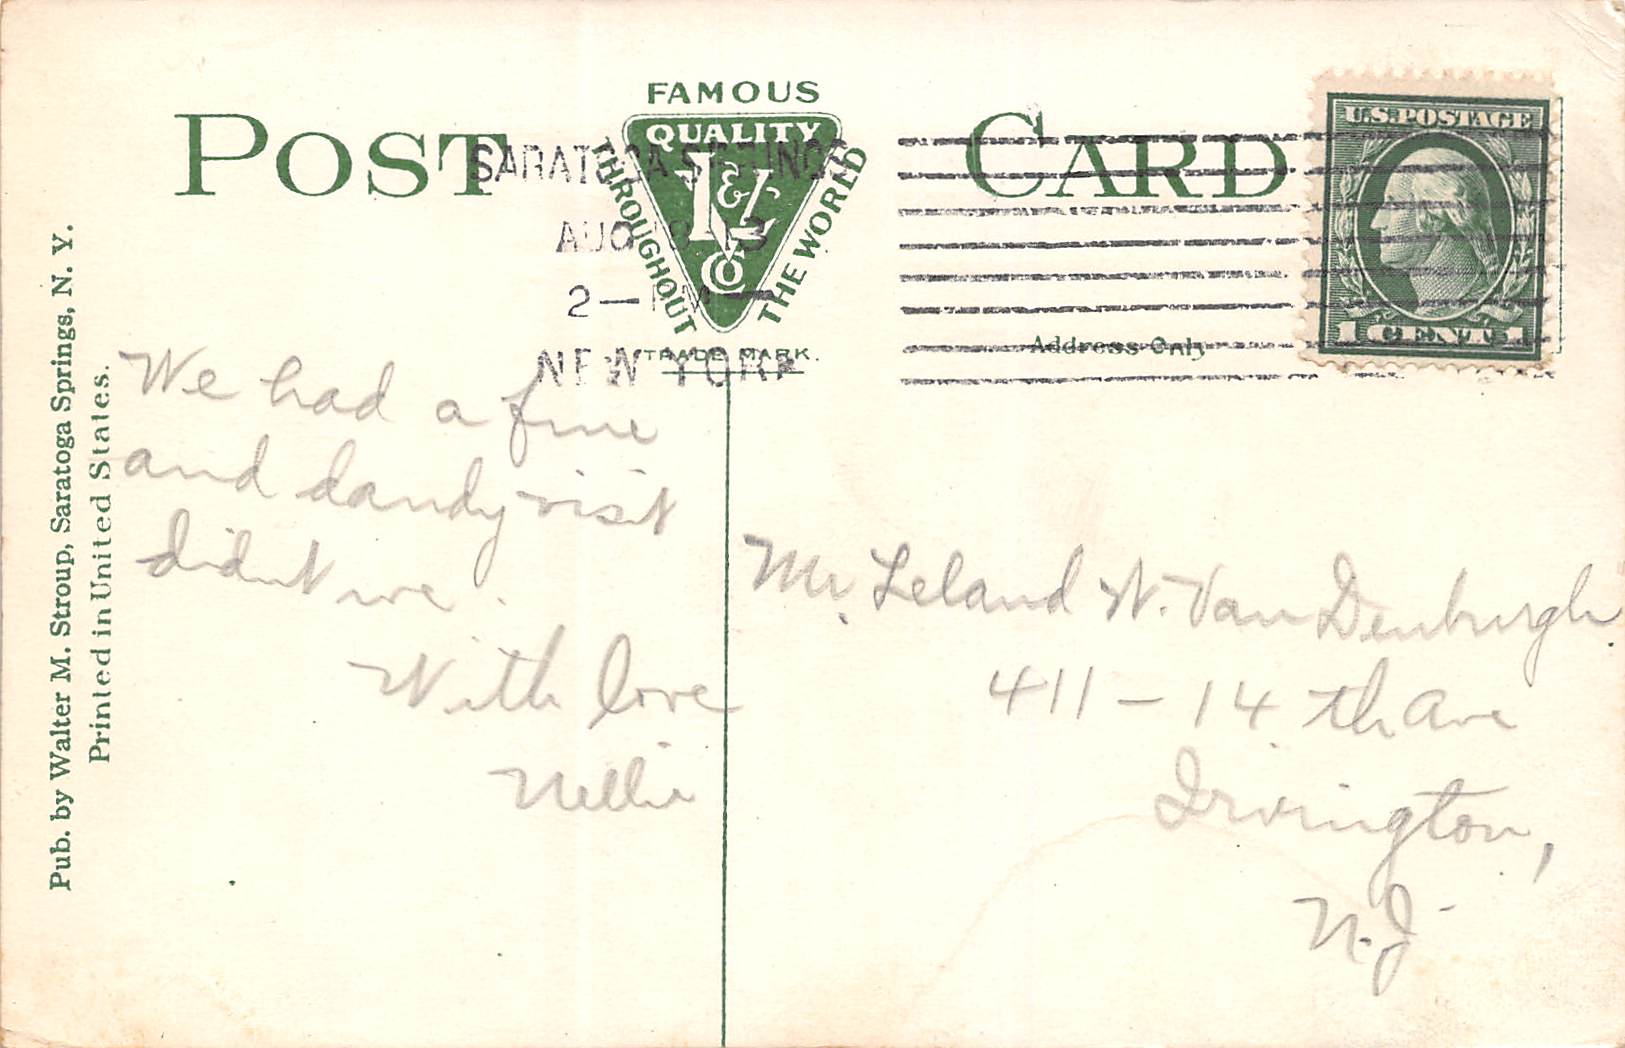 POST CARD
FAMOUS
QUALITY
THROUGHOUT THE WORLD
T & L Co
TRADE MARK.
SARATOGA SPRINGS
AUG 18
2—PM
NEW YORK
U.S. POSTAGE
1 CENT 1
Address Only
Pub. by Walter M. Stroup, Saratoga Springs, N. Y.
Printed in United States.
We had a fine
and dandy visit
didn't we.
With love
Nellie
Mr. Leland W. Van Denburgh.
411 - 14 th Ave
Irvington,
N.J.